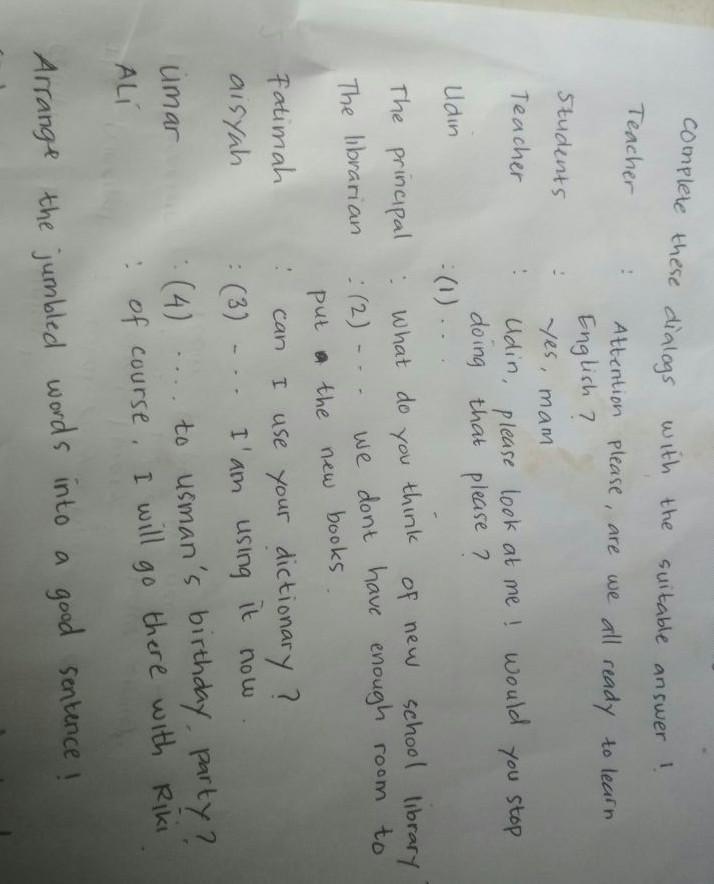 Complete these dialogs with the suitable answer!
Teacher : Attention please, are we all ready to learn
English?
Students : Yes, mam
Teacher : Udin, please look at me! Would you stop
doing that please?
Udin : (1)...
The principal : What do you think of new school library
The librarian : (2) --- we dont have enough room to
put the new books.
Fatimah : can I use your dictionary?
aisyah : (3) --- I'am using it now.
Umar : (4) .... to usman's birthday party?
ALi : of course, I will go there with Riki.
Arrange the jumbled words into a good sentence!